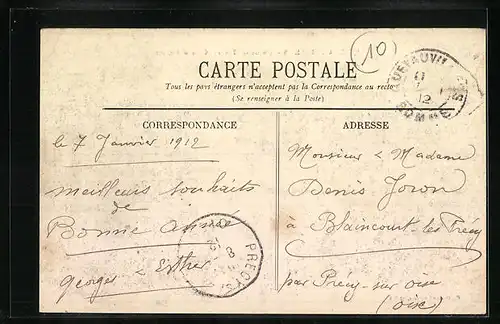 (10)
CARTE POSTALE
Tous les pays étrangers n'acceptent pas la Correspondance au recto
(Se renseigner à la Poste)
CORRESPONDANCE
le 7 Janvier 1912
meilleurs souhaits
de
Bonne année
georges & Esther
ADRESSE
Monsieur & Madame
Denis Joron
à Blaincourt-les Précy
par Précy-sur oise
(oise)
12
SOMME
PRECY
8